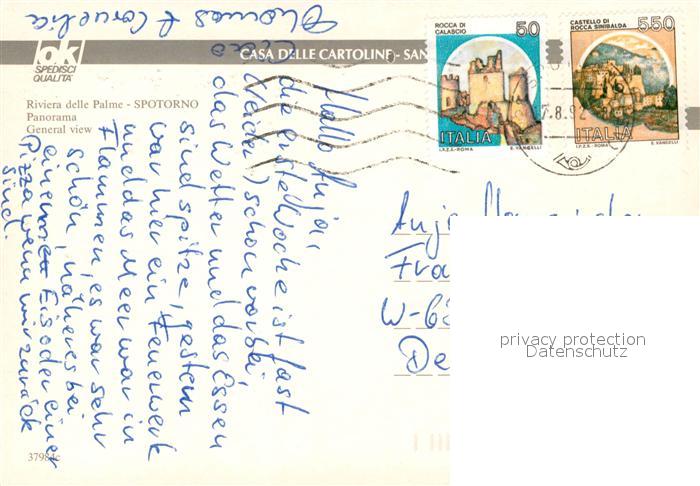 Thomas & Cornelia
lok
SPEDISCI
QUALITA'
CASA DELLE CARTOLINE - SAN
Riviera delle Palme - SPOTORNO
Panorama
General view
ROCCA DI
CALASCIO
50
ITALIA
I.P.Z.S.-ROMA
E. VANGELLI
CASTELLO DI
ROCCA SINIBALDA
550
ITALIA
I.P.Z.S.-ROMA
E. VANGELLI
7.8.92
Hallo Anja,
die erste Woche ist fast
(leider) schon vorbei
das Wetter und das Essen
sind spitze, gestern
war hier ein Feuerwerk
und das Meer war in
Flammen, es war sehr
schön, näheres bei
einem Eis oder einer
Pizza wenn wir zurück
sind.
Anja
Fra
W-6
De
privacy protection
Datenschutz